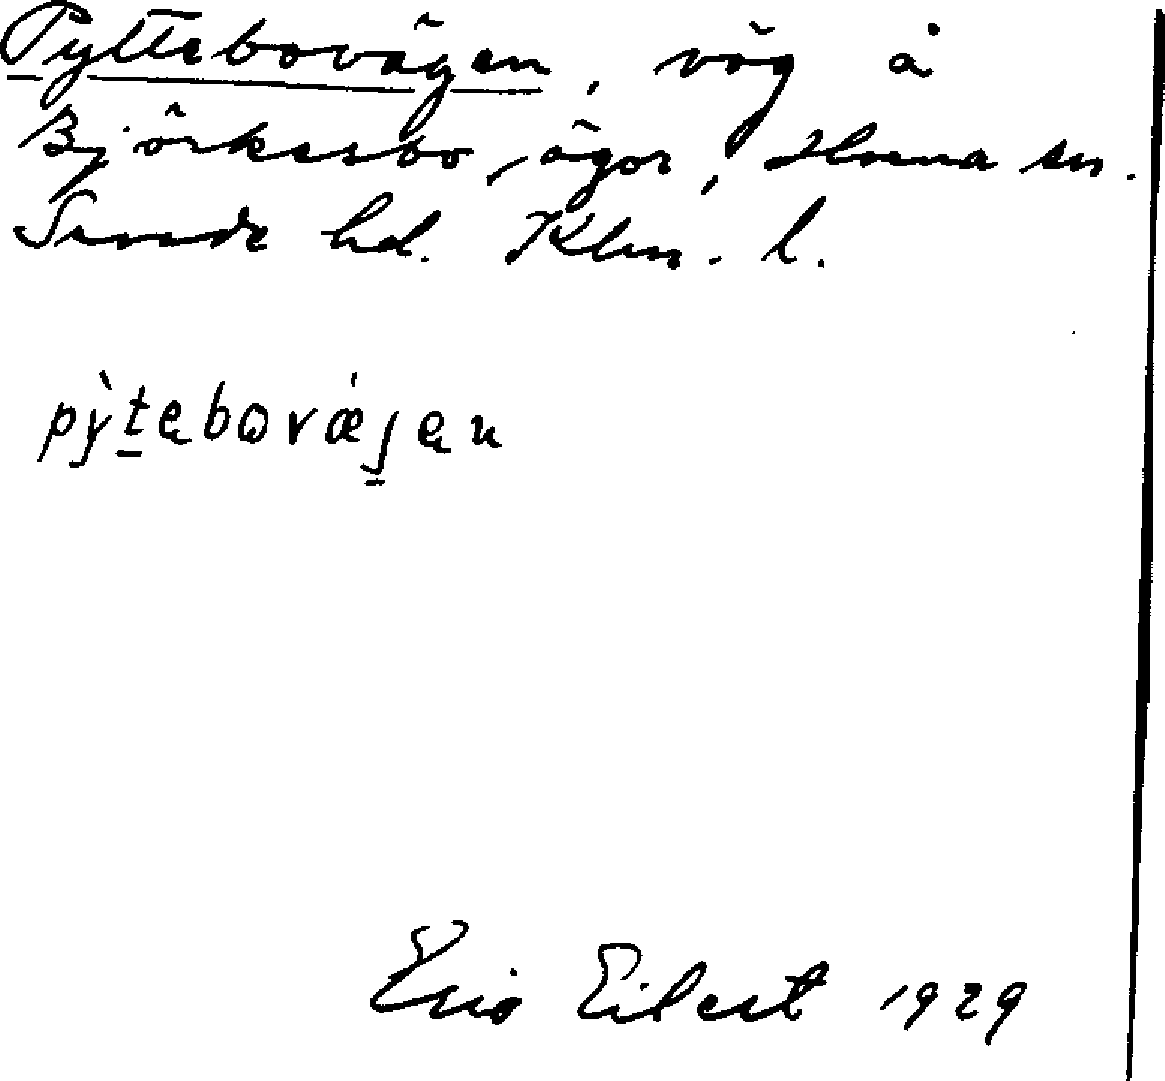 Pyttebovägen, väg å
Björkesbo ägor, Hossna sn.
Sevede hd. Klm. l.
pỳteboväjen
Eilert 1929